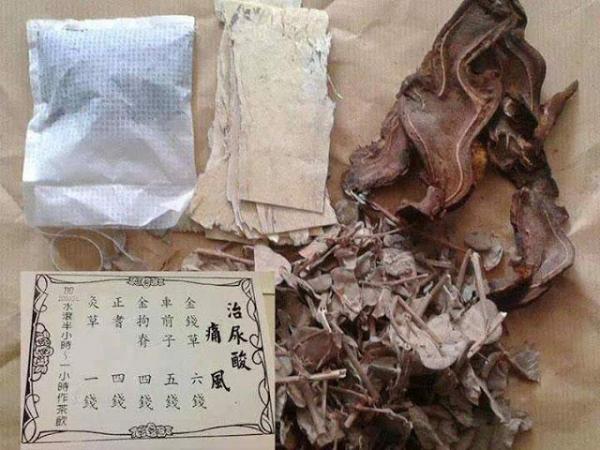 治尿酸
痛風
金錢草 六錢
車前子 五錢
金拘脊 四錢
正耆 四錢
灸草 一錢
加水滾半小時~一小時作茶飲